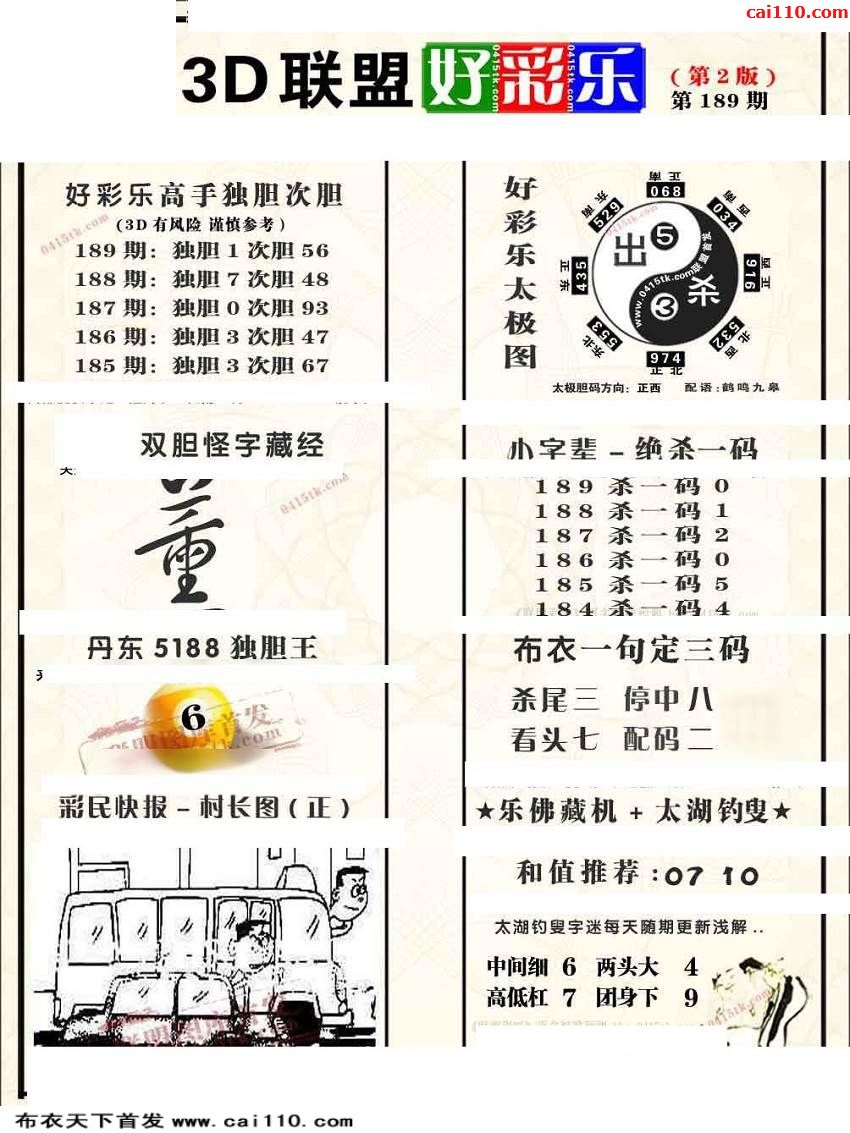 cai110.com
3D联盟 好彩乐
(第2版)
第189期
好彩乐高手独胆次胆
(3D有风险 谨慎参考)
189期：独胆1次胆56
188期：独胆7次胆48
187期：独胆0次胆93
186期：独胆3次胆47
185期：独胆3次胆67
0415tk.com
好彩乐太极图
正南 068
西南 034
正西 916
西北 532
正北 974
东北 553
正东 435
东南 529
出 5
杀 3
www.0415tk.com联盟首发
太极胆码方向：正西 配语：鹤鸣九皋
双胆怪字藏经
0415tk.com
小字辈-绝杀一码
189杀一码0
188杀一码1
187杀一码2
186杀一码0
185杀一码5
184杀一码4
丹东5188独胆王
6
布衣一句定三码
杀尾三 停中八
看头七 配码二
彩民快报-村长图(正)
★乐佛藏机+太湖钓叟★
和值推荐:07 10
太湖钓叟字迷每天随期更新浅解..
中间细 6 两头大 4
高低杠 7 团身下 9
0415tk.com
布衣天下首发 www.cai110.com